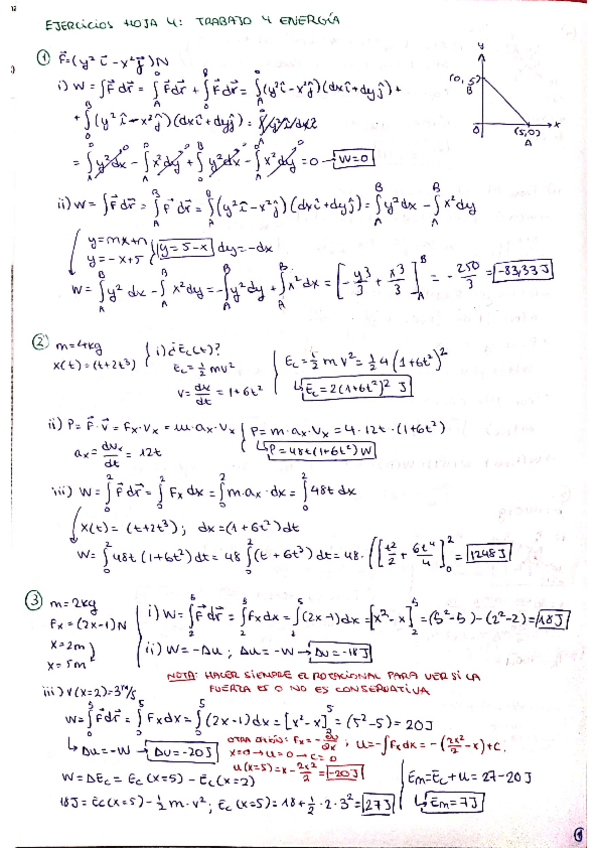 EJERCICIOS HOJA 4: TRABAJO Y ENERGÍA
① F⃗=(y² î - x² ĵ)N
i) W = ∫F⃗dr⃗ = ∫_A^0 F⃗dr⃗ + ∫_0^B F⃗dr⃗ = ∫_A^0 (y² î - x² ĵ)(dx î + dy ĵ) +
+ ∫_0^B (y² î - x² ĵ)(dx î + dy ĵ) =
= ∫_A^0 y²dx - ∫_A^0 x²dy + ∫_0^B y²dx - ∫_0^B x²dy = 0 → W=0
y
(0,5)
B
0
(5,0)
A
x
ii) W = ∫F⃗dr⃗ = ∫_A^B F⃗dr⃗ = ∫_A^B (y² î - x² ĵ)(dx î + dy ĵ) = ∫_A^B y²dx - ∫_A^B x²dy
y=mx+n
y=-x+5
y=5-x
dy=-dx
W = ∫_A^B y²dx - ∫_A^B x²dy = -∫_A^B y²dy + ∫_A^B x²dx = [-y³/3 + x³/3]_A^B = -250/3 = -83,33 J
② m=4kg
x(t)=(t+2t³)
i) ¿Ec(t)?
Ec = ½ mv²
v = dx/dt = 1+6t²
Ec = ½ m v² = ½ 4 (1+6t²)²
↳ Ec = 2(1+6t²)² J
ii) P = F⃗·v⃗ = Fx·Vx = m·ax·Vx
P = m·ax·Vx = 4·12t·(1+6t²)
ax = dvx/dt = 12t
↳ P=48t(1+6t²)W
iii) W = ∫_0^2 F⃗dr⃗ = ∫_0^2 Fx dx = ∫_0^2 m·ax·dx = ∫_0^2 48t dx
x(t) = (t+2t³); dx=(1+6t²)dt
W = ∫_0^2 48t(1+6t²)dt = 48 ∫_0^2 (t+6t³)dt = 48·([t²/2 + 6t⁴/4]_0^2 = 1248 J
③ m=2kg
Fx=(2x-1)N
x=2m
x=5m
i) W = ∫_2^5 F⃗dr⃗ = ∫_2^5 Fxdx = ∫_2^5 (2x-1)dx = [x²-x]_2^5 = (5²-5)-(2²-2) = 18J
ii) W=-ΔU; ΔU=-W → ΔU=-18J
NOTA: HACER SIEMPRE EL ROTACIONAL PARA VER SI LA
FUERZA ES O NO ES CONSERVATIVA
iii) V(x=2)=3m/s
W = ∫_0^5 F⃗dr⃗ = ∫_0^5 Fxdx = ∫_0^5 (2x-1)dx = [x²-x]_0^5 = (5²-5) = 20J
↳ ΔU=-W → ΔU=-20J
OTRA OPCIÓN: Fx = -∂U/∂x; U=-∫Fxdx = -(2x²/2 - x)+C.
x=0→U=0→C=0
U(x=5)=x-2x²/2 = -20J
W=ΔEc = Ec(x=5) - Ec(x=2)
18J = Ec(x=5) - ½ m·v²; Ec(x=5) = 18+½·2·3² = 27J
Em=Ec+U = 27-20J
↳ Em=7J
①